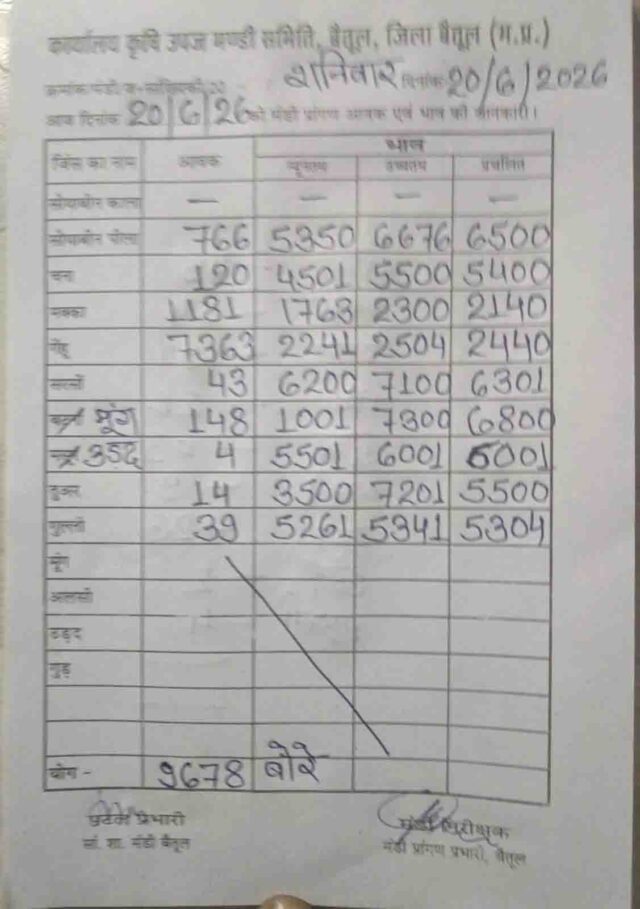 कार्यालय कृषि उपज मण्डी समिति, बैतूल, जिला बैतूल (म.प्र.)
शनिवार दिनांक 20/6/2026
आज दिनांक 20/6/26 को मंडी प्रांगण आवक एवं भाव की जानकारी।
जिंस का नाम आवक भाव
न्यूनतम उच्चतम प्रचलित
सोयाबीन काला — — — —
सोयाबीन पीला 766 5350 6676 6500
चना 120 4501 5500 5400
मक्का 1181 1763 2300 2140
गेहू 7363 2241 2504 2440
सरसों 43 6200 7100 6301
मूंग 148 1001 7300 6800
उडद 4 5501 6001 6001
तुअर 14 3500 7201 5500
गुल्ली 39 5261 5341 5304
मूंग
अलसी
उड़द
गुड़
योग - 9678 बोरे
प्रभारी मंडी निरीक्षक
सां. शा. मंडी बैतूल मंडी प्रांगण प्रभारी, बैतूल